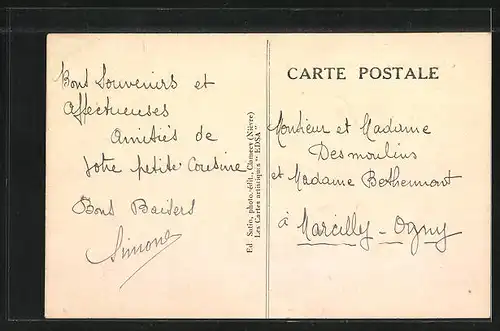 Bons Souvenirs et
affectueuses
Amitiés de
votre petite Cousine
Bons Baisers
Simone
Ed Satin, photo.-édit., Clamecy (Nièvre)
Les Cartes artistiques "EDSA"
CARTE POSTALE
Monsieur et Madame
Desmoulins
et Madame
à Marcilly - Ogny